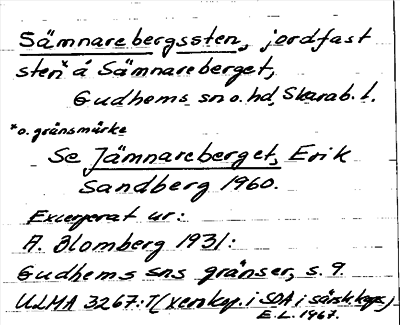 Sämnarebergssten, jordfast
sten* å Sämnareberget,
Gudhems sn o. hd, Skarab. l.
*o. gränsmärke
Se Jämnareberget, Erik
Sandberg 1960.
Excerperat ur:
A. Blomberg 1931:
Gudhems sns gränser, s. 9.
ULMA 3267:7 (xeroxkop. i SOA i särsk. kaps.)
E.L. 1967.